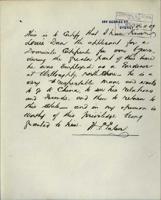 This is to Certify that I have known
Louis Dan the applicant for a
Domicile Certificate for over 6 years
during the greater part of this time
he was employed as a Gardener
at Willoughby, North Shore. he is a
very respectable man and wants
to go to China, to see his relations
and friends and then to return to
this State, and in my opinion is
worthy of this Privilege being
granted to him.